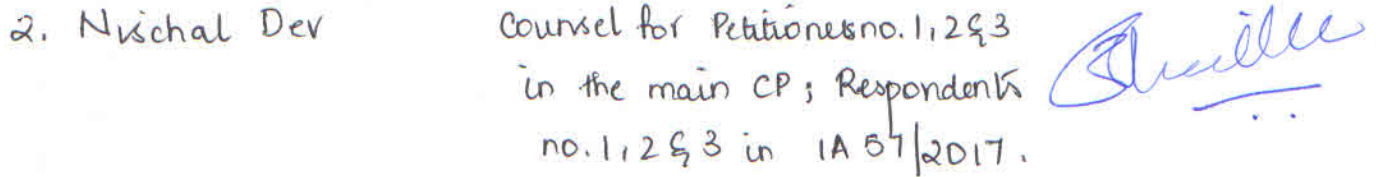 2. Nischal Dev Counsel for Petitioners no. 1, 2 & 3
in the main CP; Respondents
no. 1, 2 & 3 in IA 57/2017.